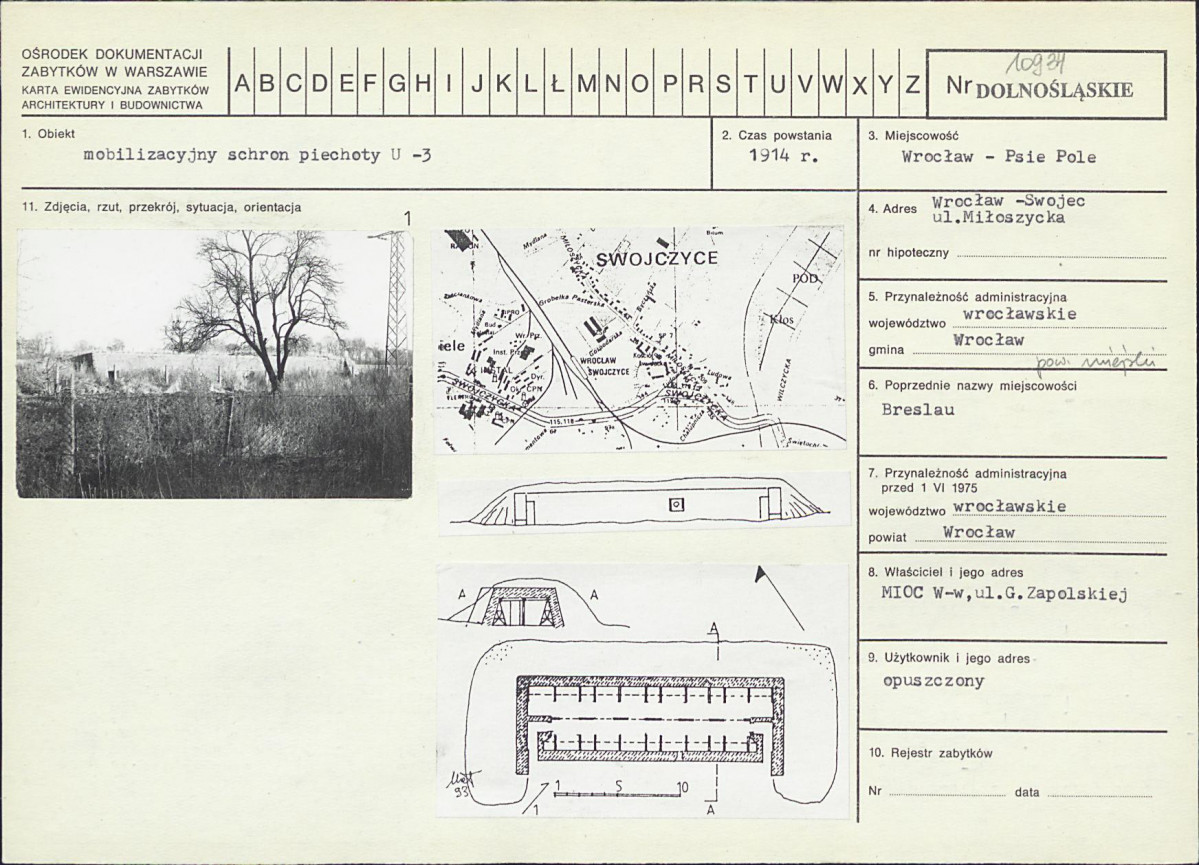 OŚRODEK DOKUMENTACJI
ZABYTKÓW W WARSZAWIE
KARTA EWIDENCYJNA ZABYTKÓW
ARCHITEKTURY I BUDOWNICTWA
A B C D E F G H I J K L Ł M N O P R S T U V W X Y Z
10934
Nr DOLNOŚLĄSKIE
1. Obiekt
mobilizacyjny schron piechoty U -3
2. Czas powstania
1914 r.
3. Miejscowość
Wrocław - Psie Pole
4. Adres Wrocław -Swojec
ul.Miłoszycka
nr hipoteczny
5. Przynależność administracyjna
województwo wrocławskie
gmina Wrocław
pow. miejski
6. Poprzednie nazwy miejscowości
Breslau
7. Przynależność administracyjna
przed 1 VI 1975
województwo wrocławskie
powiat Wrocław
8. Właściciel i jego adres
MIOC W-w,ul.G.Zapolskiej
9. Użytkownik i jego adres
opuszczony
10. Rejestr zabytków
Nr data
11. Zdjęcia, rzut, przekrój, sytuacja, orientacja
1
SWOJCZYCE
Myślana
Grobelka Pasterska
Gospodarska
WROCŁAW
SWOJCZYCE
SWOJCZYCKA
SWOJCZYCKA
WILCZYCKA
Ludowa
Inst. Prz.
Wr. Pz.
Dyr.
115.118
POD
Kłos
iele
A A
A
A
93
1
1 5 10